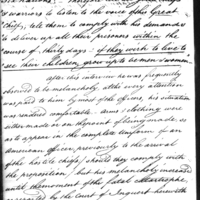 warriors to listen to the voice of the Great
Chiefs; tell them to comply with his demands
to deliver up all their prisoners within the
course of thirty days: if they wish to live to
see their children grow up to be men & women.
after this interview he was frequently
observed to be melancholy altho every attention
was paid to him by most of the officers, his situation
was rendered comfortable. Some clothing were
either made or on the point of being made, so
as to appear in the complete uniform of an
american officer, previously to the arrival
of the hostile chiefs, should they comply with
the proposition; but his melancholy increased
until the moment of the fatal catastrophe
by the Court of Inquest herewith